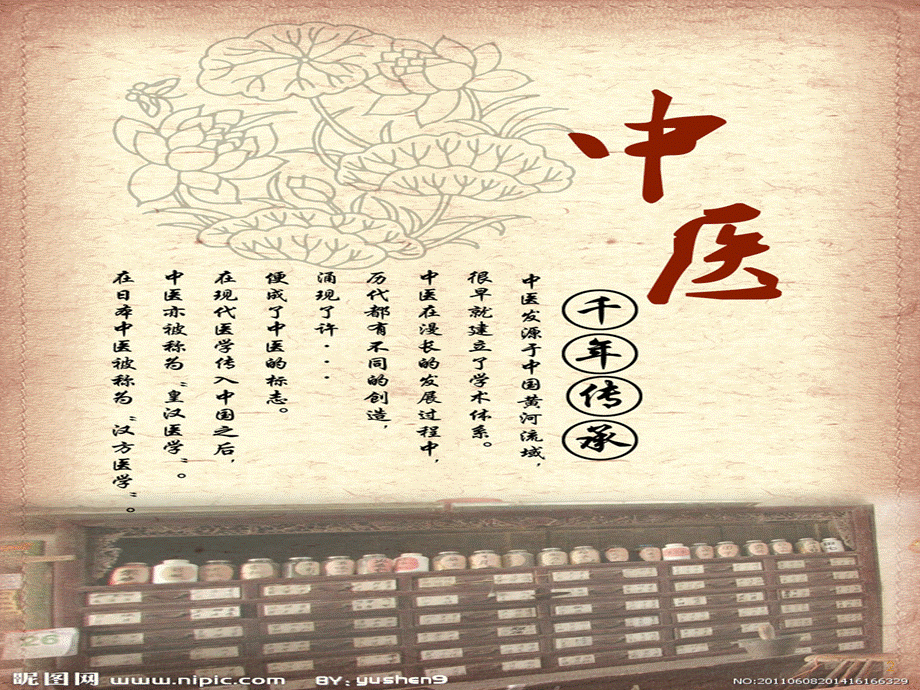 中医
千年传承
中医发源于中国黄河流域，
很早就建立了学术体系。
中医在漫长的发展过程中，
历代都有不同的创造，
涌现了许···
便成了中医的标志。
在现代医学传入中国之后，
中医亦被称为“皇汉医学”。
在日本中医被称为“汉方医学”。
26
昵图网 www.nipic.com BY:yushen9
NO:20110608201416166329